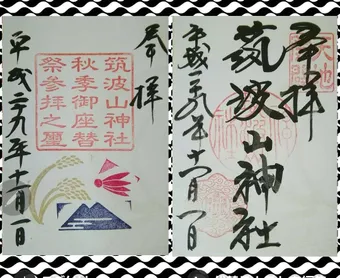 奉拝
筑波山神社
秋季御座替
祭参拝之璽
平成二九年十一月一日
奉拝
天地
筑波山神社
平成二九年十一月一日